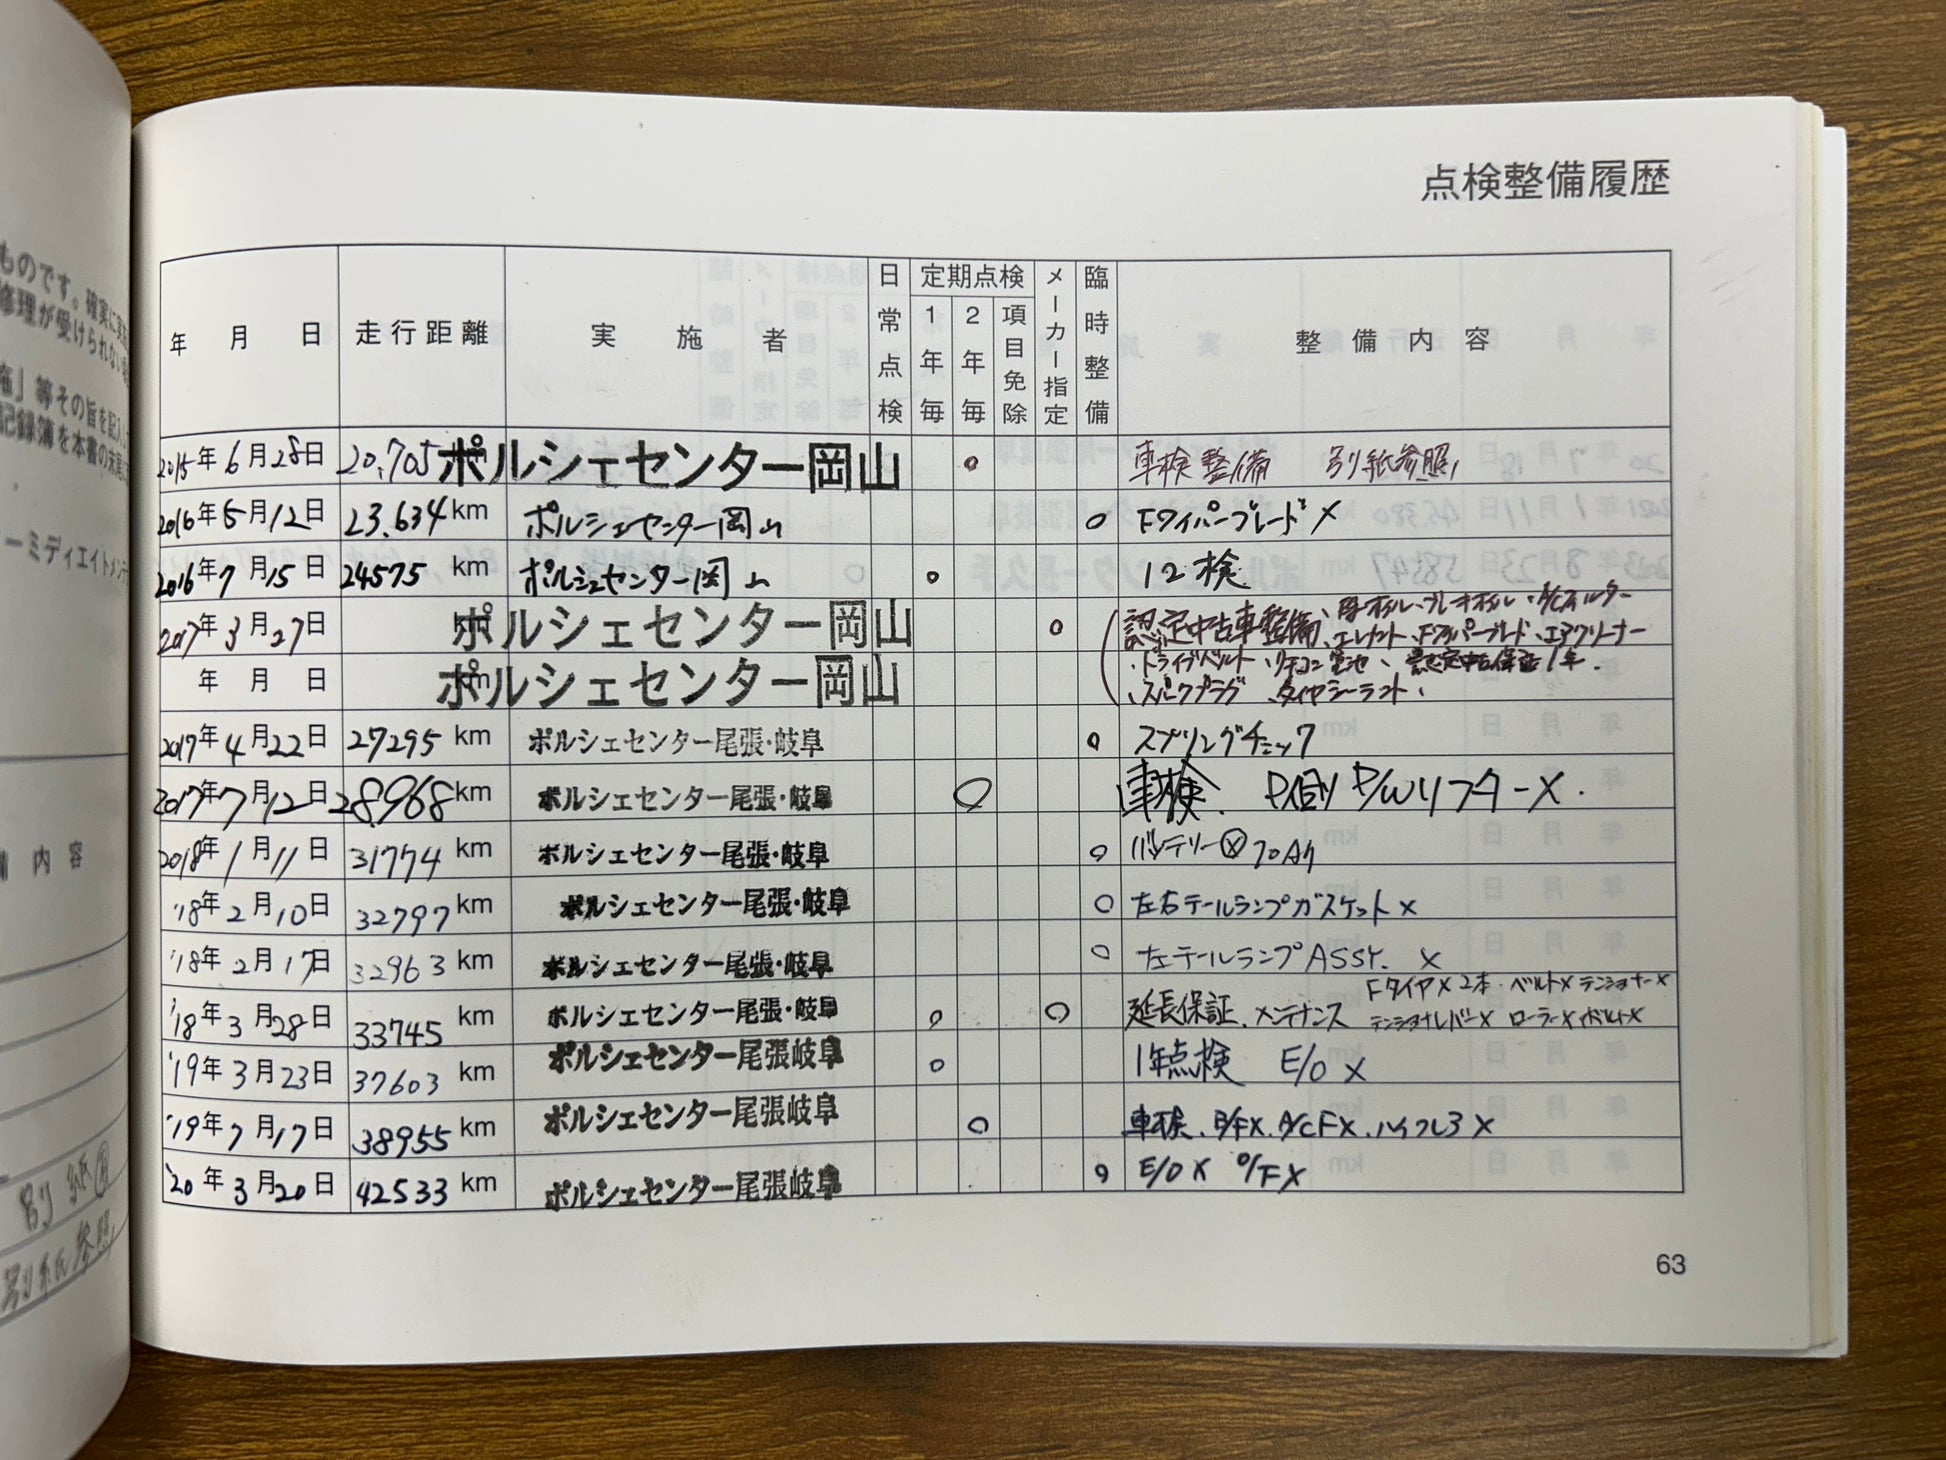 点検整備履歴
年 月 日 走行距離 実施者 日常点検 定期点検 1年毎 2年毎 項目免除 メーカー指定 臨時整備 整備内容
2015年6月28日 20,705 km ポルシェセンター岡山 ○ 車検整備 別紙参照
2016年5月12日 23,634km ポルシェセンター岡山 ○ Fワイパーブレード×
2016年7月15日 24575 km ポルシェセンター岡山 ○ 12検
2017年3月27日 km ポルシェセンター岡山 ○ 認定中古車整備、
エレメント、Fワイパーブレード、エアクリーナー
年 月 日 km ポルシェセンター岡山 、ドライブベルト、リモコン電池、認定中古保証1年.
、スパークプラグ、タイヤシーラント、
2017年4月22日 27295 km ポルシェセンター尾張・岐阜 ○ スプリングチェック
2017年7月12日 28968km ポルシェセンター尾張・岐阜 ○ 車検、P/Wリフター×.
2018年1月11日 31774 km ポルシェセンター尾張・岐阜 ○ バッテリーⓧ70Ah
'18年2月10日 32797 km ポルシェセンター尾張・岐阜 ○ 左右テールランプガスケット×
'18年2月17日 32963 km ポルシェセンター尾張・岐阜 ○ 左テールランプASSY. ×
'18年3月28日 33745 km ポルシェセンター尾張・岐阜 ○ ○ 延長保証、メンテナンス Fタイヤ×2本・ベルト×テンショナー×
テンショナーレバー× ローラー×ボルト×
'19年3月23日 37603 km ポルシェセンター尾張岐阜 ○ 1年点検 E/O ×
'19年7月17日 38955 km ポルシェセンター尾張岐阜 ○ 車検、B/F×、A/C F×、ハイフレ3×
'20年3月20日 42533 km ポルシェセンター尾張岐阜 ○ E/O × O/F×
63
ものです。確実に実
修理が受けられない
施」等その旨を記入
記録簿を本書の末尾
ーミディエイトメンテ
内容
別紙
別紙参照